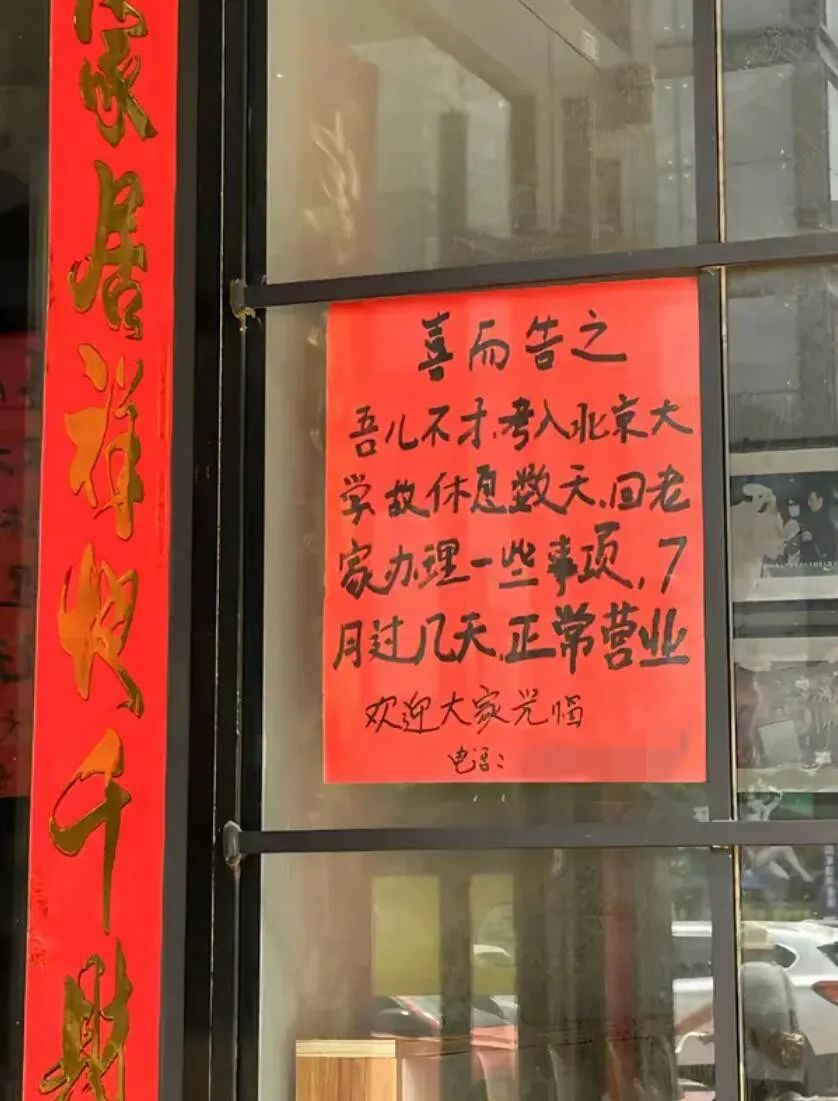 家居祥悦千财
喜而告之
吾儿不才,考入北京大
学故休息数天,回老
家办理一些事项,7
月过几天,正常营业
欢迎大家光临
电话: